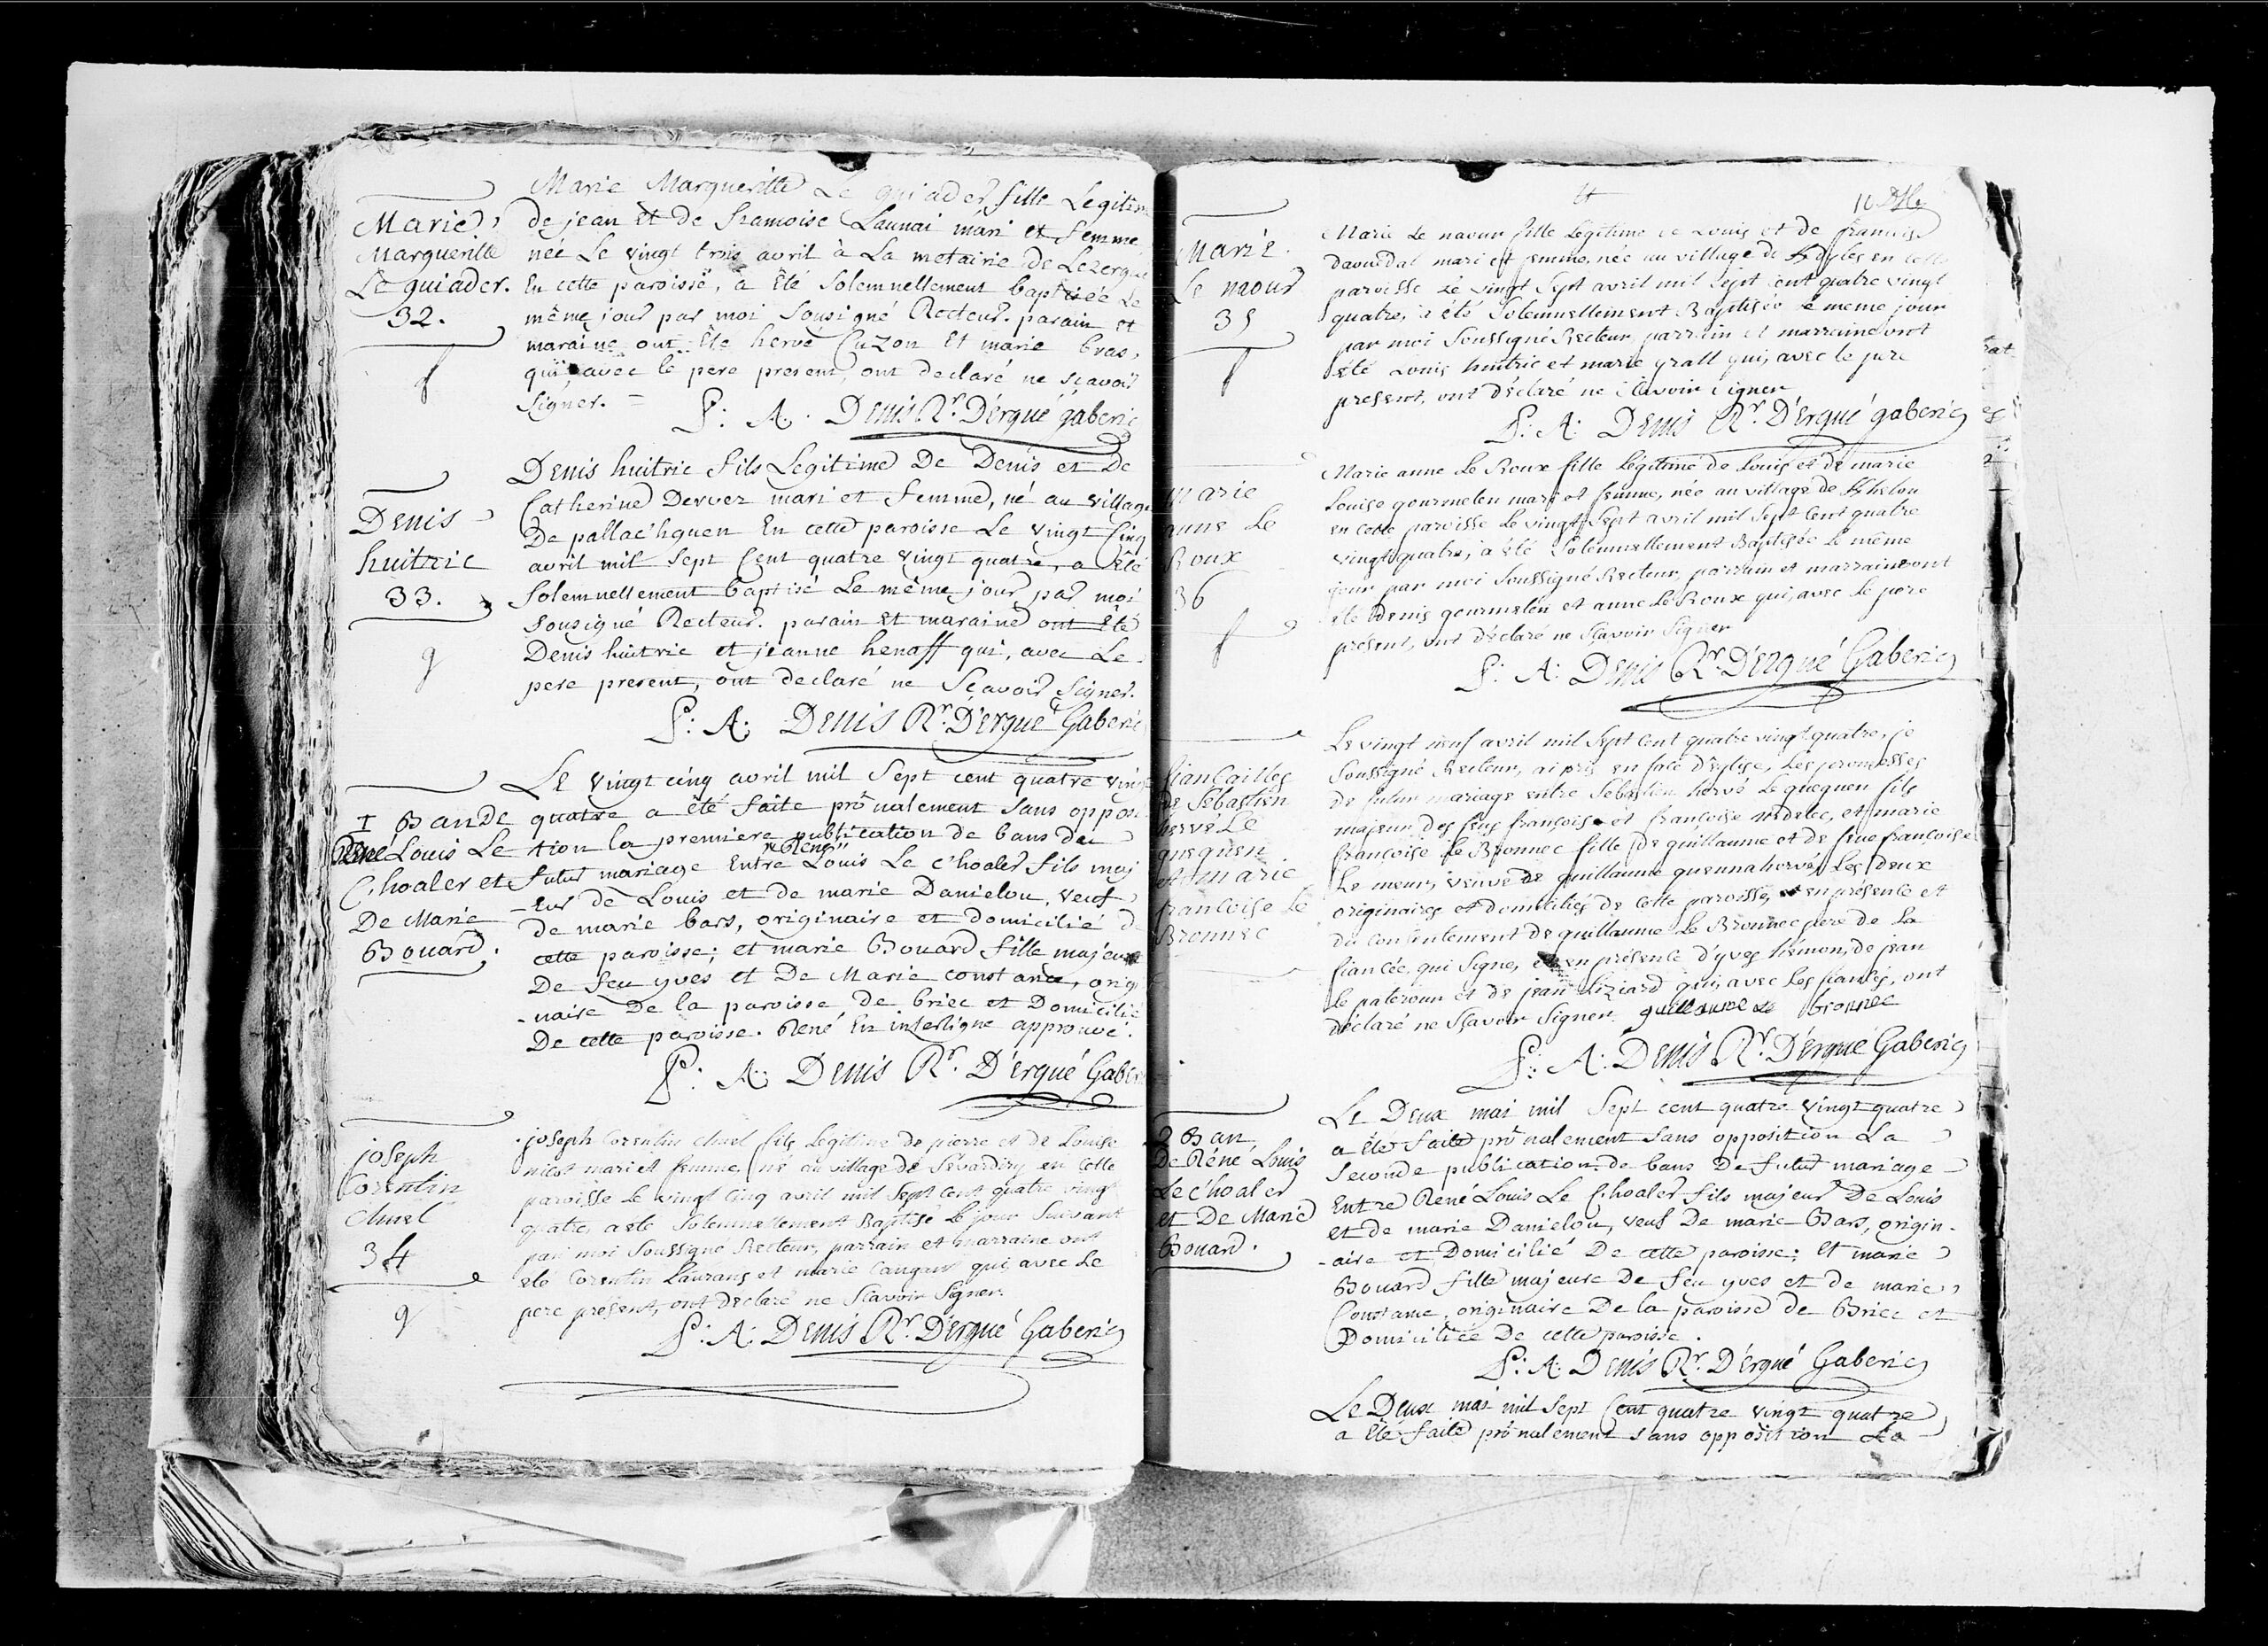 Marie Margueritte Le guiader fille Legitim
de jean et de francoise Launai mari et femme
née Le vingt trois avril à La metairie de Lezergué
En cette paroisse, a Eté Solemnellement baptisée Le
même jour par moi Sousigné Recteur. parain et
maraine ont Ete hervé Cuzon et marie bras,
qui avec le pere present, ont declaré ne sçavoir
signer. =
Marie
Margueritte
Le guiader.
32.
f
P: A. Denis Rr. D'ergué gaberic
Denis huitric fils Legitime De Denis et De
Catherine Derver mari et femme, né au village
De pallac'hguen En cette paroisse Le vingt Cinq
avril mil Sept Cent quatre vingt quatre, a Eté
Solemnellement baptisé Le même jour par moi
sousigné Recteur. parain et maraine ont Eté
Denis huitric et jeanne henaff qui, avec Le
pere present, ont declaré ne Sçavoir Signer.
Denis
huitric
33.
g
P: A: Denis Rr. D'ergué Gaberic
Le vingt cinq avril mil Sept cent quatre vingt
quatre a été faite prônalement sans opposi
tion la premiere publication de bans du
René
futur mariage Entre Louis Le C'hoaler fils maj
-eur de Louis et de marie Danielou, veuf
de marie bars, originaire et domicilié d
cette paroisse; et marie Bouard fille majeure
De feu yves et De Marie constance, origi
-naire De la paroisse de briec et Domicilié
De cette paroisse. René En interligne approuvé.
I Ban de
René Louis Le
C'hoaler et
De Marie
Bouard.
P: A: Denis Rr. D'ergué Gaberi
joseph Corentin Huel fils Legitime de pierre et de Louise
nicot mari et femme, né au village de Sevardiry en cette
paroisse Le vingt Cinq avril mil Sept Cent quatre vingt
quatre, a eté Solemnellement Baptisé Le jour Suivant
par moi Soussigné Recteur, parrain et marraine ont
eté Corentin Laurans et marie qui avec Le
pere présent, ont Declaré ne Scavoir Signer.
joseph
Corentin
Huel
34
g
P: A: Denis Rr. D'ergué Gaberic
Marie Le naour fille Legitime de Louis et de francoise
daoudal mari et femme, née au village de en cette
paroisse Le vingt Sept avril mil Sept cent quatre vingt
quatre, a été Solemnellement Baptisée le meme jour
par moi Soussigné Recteur, parrain et marraine ont
été Louis huitric et marie grall qui, avec le pere
present, ont déclaré ne Scavoir Signer
Marie
Le naour
35
f
P: A: Denis Rr. D'ergué gaberic
Marie anne Le Roux fille Légitime de Louis et de marie
Louise gourmelen mari et femme, née au village de
en cette paroisse Le vingt Sept avril mil Sept Cent quatre
vingt quatre, a été Solemnellement Baptisée Le même
jour par moi Soussigné Recteur, parrain et marraine ont
été Denis gourmelen et anne Le Roux qui, avec le pere
présent, ont déclaré ne Sçavoir Signer
marie
anne Le
Roux
36
f
P: A: Denis Rr. D'ergué Gaberic
Le vingt neuf avril mil Sept Cent quatre vingt quatre, je
Soussigné Recteur, ai pris en face d'Eglise, Les promesses
de futur mariage entre Sébastien hervé Le gueguen fils
majeur des feus françois et françoise nédelec, et marie
françoise Le Bronnec fille de guillaume et de feue françoise
Le meur, veuve de guillaume guennahervé, Les deux
originaires et domiciliés de Cette paroisse, en présence et
du consentement de guillaume Le Bronnec pere de La
fiancée, qui Signe, en présence d'yves hémon, de jean
le pateroun et de jean Liziard qui, avec Les fiancés, ont
déclaré ne Sçavoir Signer. guillaume Le bronnec
fiançailles
de Sébastien
hervé Le
gueguen
et marie
françoise Le
Bronnec
P: A: Denis Rr. D'ergué Gaberic
Le Deux mai mil Sept cent quatre vingt quatre
a été faite prônalement sans opposition La
Seconde publication de bans De futur mariage
Entre René Louis Le C'hoaler fils majeur De Louis
et de marie Danielou, veuf De marie Bars, origin-
-aire et Domicilié De cette paroisse; Et marie
Bouard fille majeure De feu yves et de marie
Constance, originaire De la paroisse de Briec et
Domiciliée De cette paroisse.
2 Ban
De Réné Louis
Le C'hoaler
et De Marie
Bouard.
P: A: Denis Rr. D'ergué Gaberic
Le Deux mai mil Sept Cent quatre vingt quatre
a été faite prônalement sans opposition La